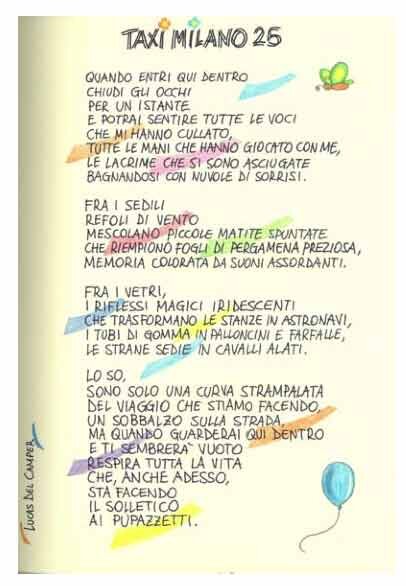 TAXI MILANO 25
QUANDO ENTRI QUI DENTRO
CHIUDI GLI OCCHI
PER UN ISTANTE
E POTRAI SENTIRE TUTTE LE VOCI
CHE MI HANNO CULLATO,
TUTTE LE MANI CHE HANNO GIOCATO CON ME,
LE LACRIME CHE SI SONO ASCIUGATE
BAGNANDOSI CON NUVOLE DI SORRISI.
FRA I SEDILI
REFOLI DI VENTO
MESCOLANO PICCOLE MATITE SPUNTATE
CHE RIEMPIONO FOGLI DI PERGAMENA PREZIOSA,
MEMORIA COLORATA DA SUONI ASSORDANTI.
FRA I VETRI,
I RIFLESSI MAGICI IRIDESCENTI
CHE TRASFORMANO LE STANZE IN ASTRONAVI,
I TUBI DI GOMMA IN PALLONCINI E FARFALLE,
LE STRANE SEDIE IN CAVALLI ALATI.
LO SO,
SONO SOLO UNA CURVA STRAMPALATA
DEL VIAGGIO CHE STIAMO FACENDO,
UN SOBBALZO SULLA STRADA,
MA QUANDO GUARDERAI QUI DENTRO
E TI SEMBRERA' VUOTO
RESPIRA TUTTA LA VITA
CHE, ANCHE ADESSO,
STA FACENDO
IL SOLLETICO
AI PUPAZZETTI.
LUCAS DEL CAMPER